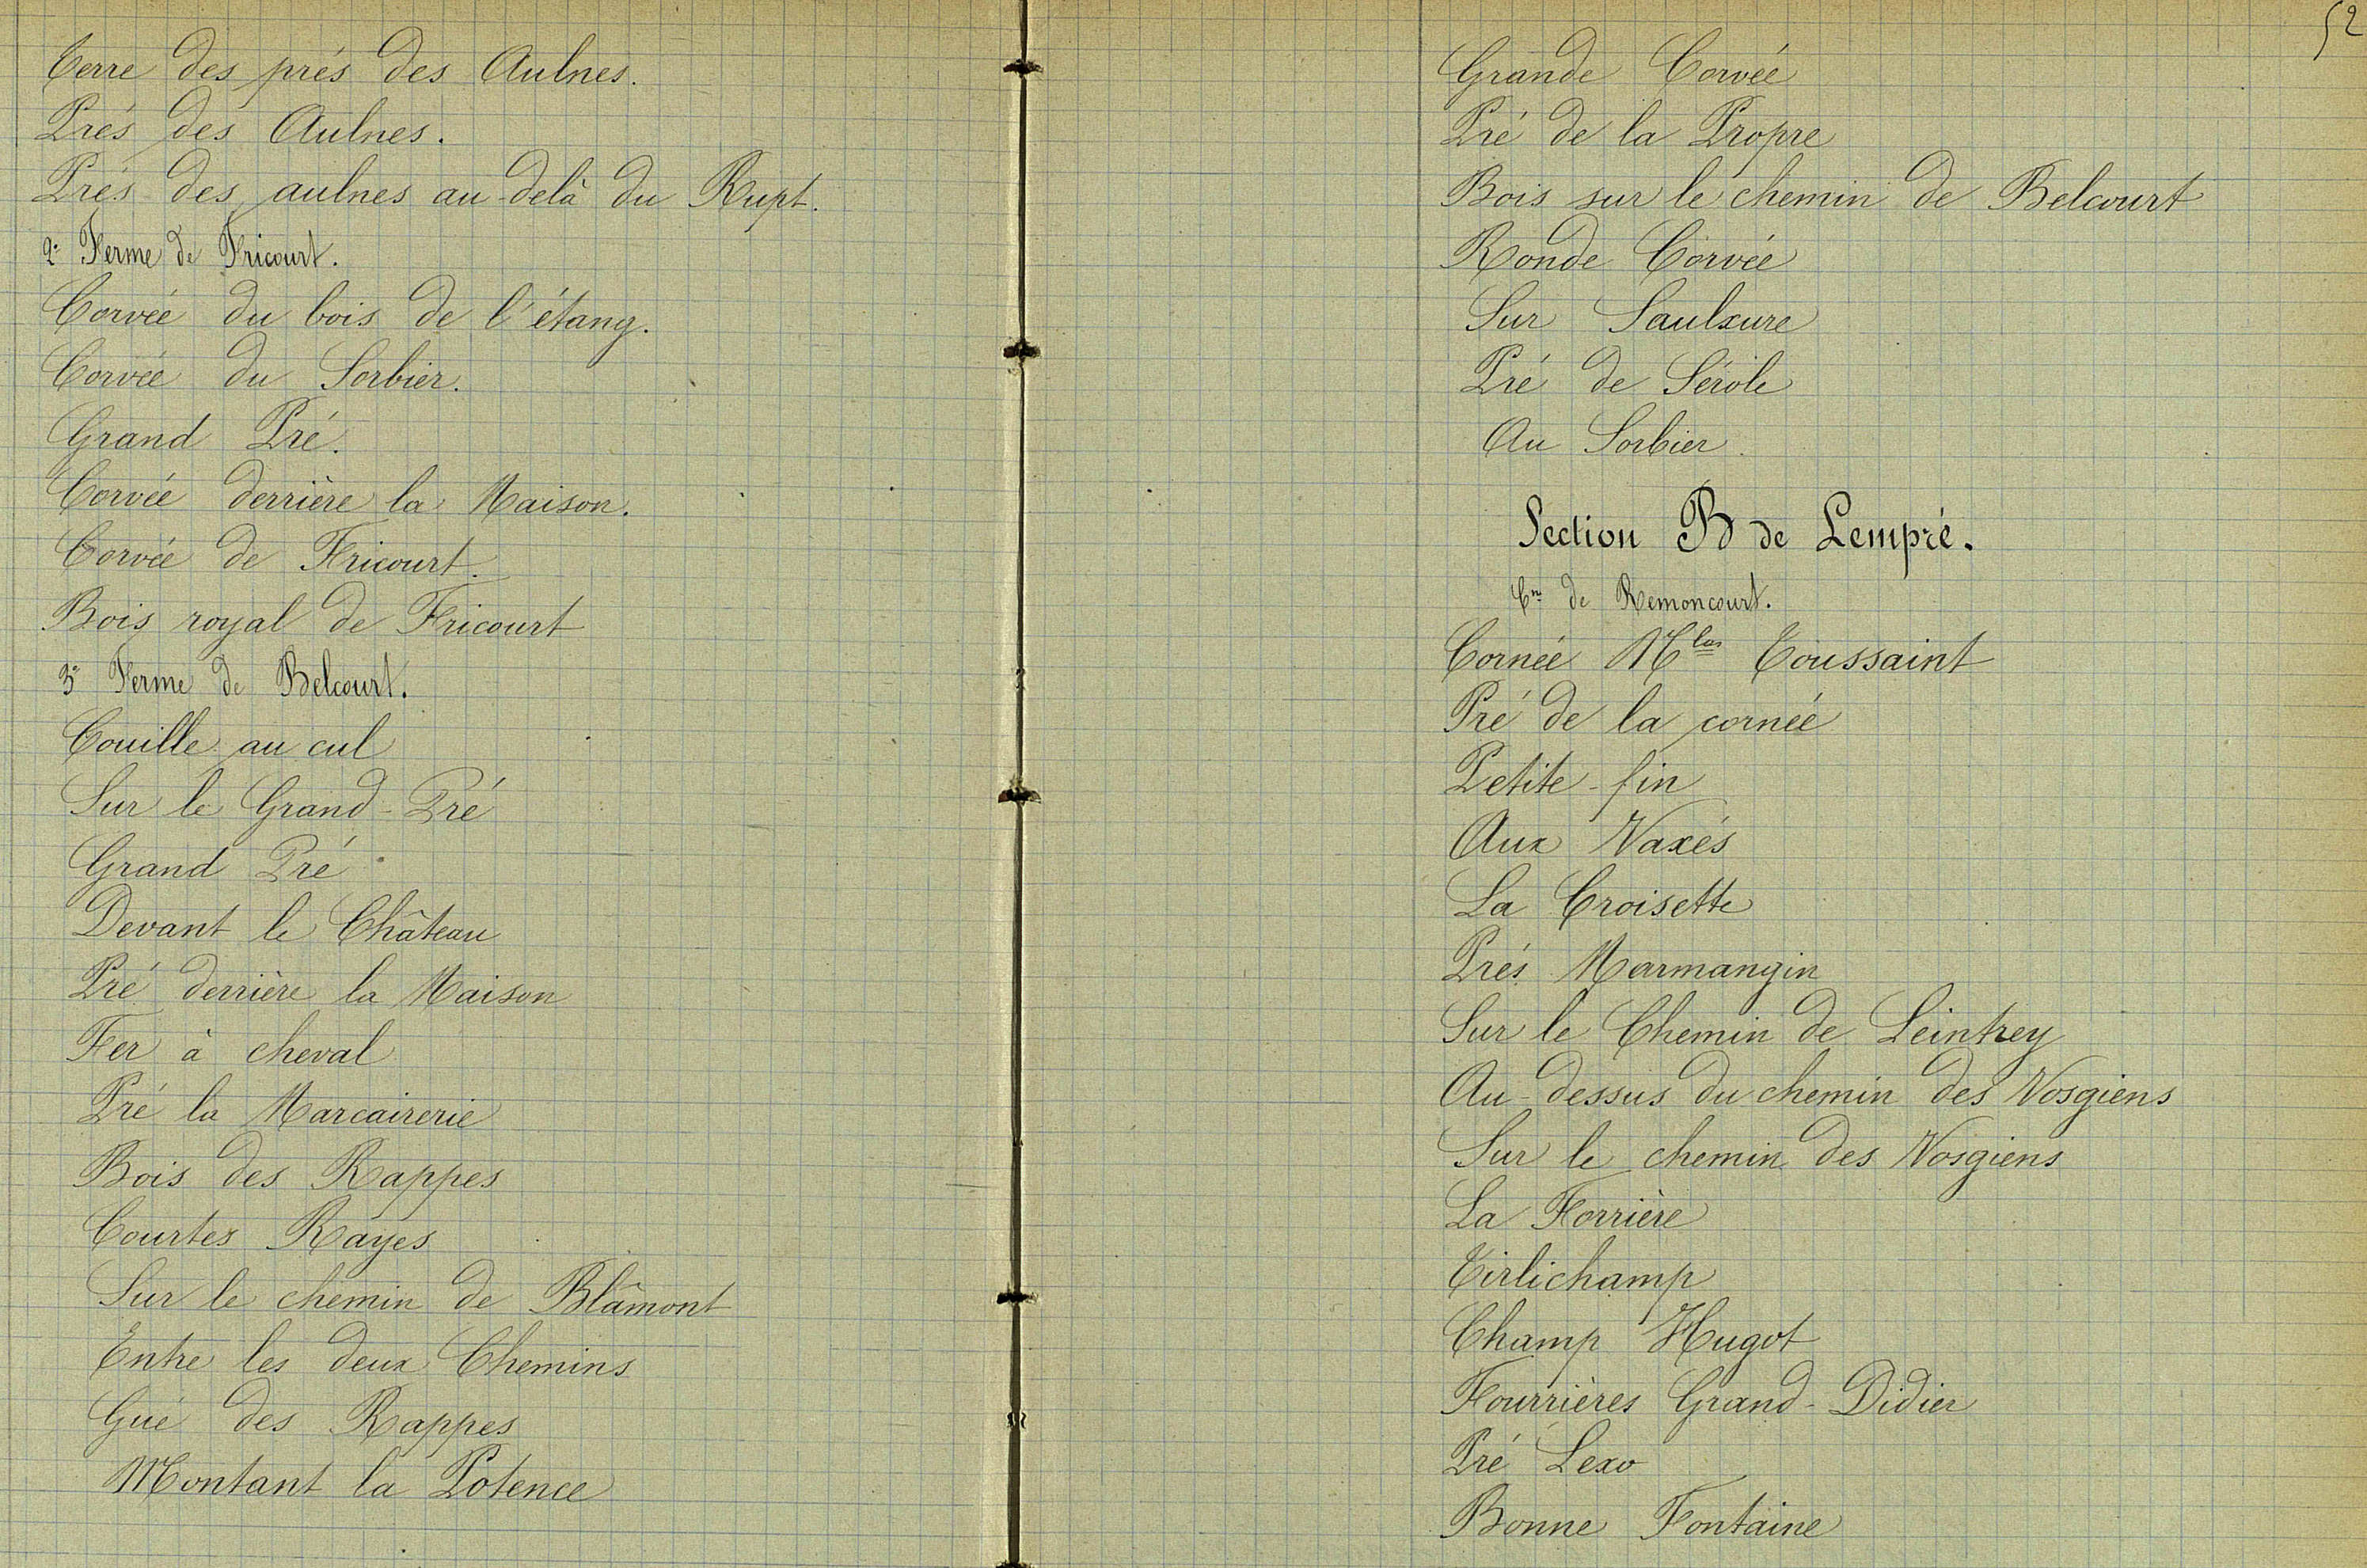 Terre des prés des Aulnes.
Prés des Aulnes.
Prés des aulnes au-delà du Rupt.
2° Ferme de Fricourt.
Corvée du bois de l'étang.
Corvée du Sorbier.
Grand Pré.
Corvée derrière la Maison.
Corvée de Fricourt.
Bois royal de Fricourt
3° Ferme de Belcourt.
Couille au cul
Sur le Grand-Pré
Grand Pré
Devant le Château
Pré derrière la Maison
Fer à cheval
Pré la Marcairerie
Bois des Rappes
Courtes Rayes
Sur le chemin de Blâmont
Entre les deux Chemins
Gué des Rappes
Montant la Potence
52
Grande Corvée
Pré de la Propre
Bois sur le chemin de Belcourt
Ronde Corvée
Sur Saulxure
Pré de Sérole
Au Sorbier.
Section B de Lempré.
Con de Remoncourt.
Cornée Mlas Toussaint
Pré de la cornée
Petite-fin
Aux Naxés
La Croisette
Prés Marmangin
Sur le Chemin de Leintrey
Au-dessus du chemin des Vosgiens
Sur le chemin des Vosgiens
La Forrière
Tirlichamp
Champ Hugot
Fourrières Grand-Didier
Pré Lexo
Bonne Fontaine